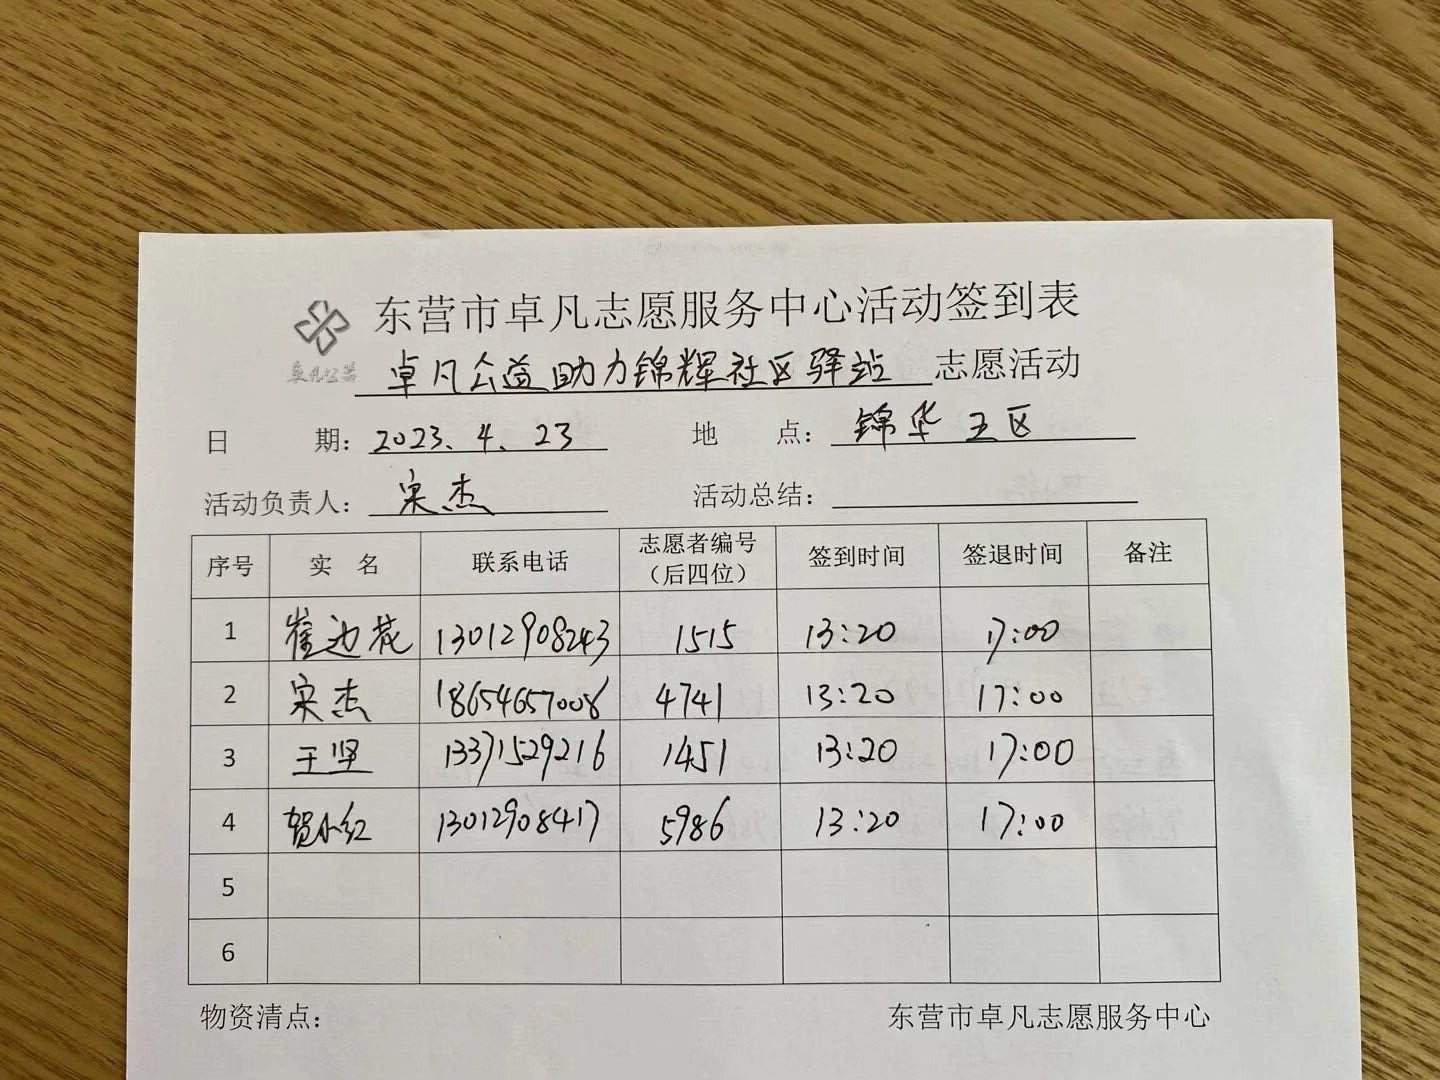 东营市卓凡志愿服务中心活动签到表
卓凡公益
卓凡公益助力锦辉社区驿站 志愿活动
日 期: 2023.4.23 地 点: 锦华五区
活动负责人: 宋杰 活动总结:
序号 实 名 联系电话 志愿者编号(后四位) 签到时间 签退时间 备注
1 崔边花 13012908243 1515 13:20 17:00
2 宋杰 18654657008 4741 13:20 17:00
3 王坚 13371529216 1451 13:20 17:00
4 贺小红 13012908417 5986 13:20 17:00
5
6
物资清点: 东营市卓凡志愿服务中心